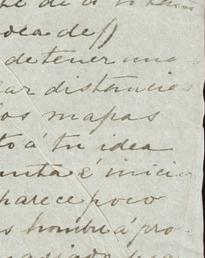 de
oca de
detener una
ar distancias
os mapas
to á tu idea
unta é inici
parece poco
s hombre á pro-